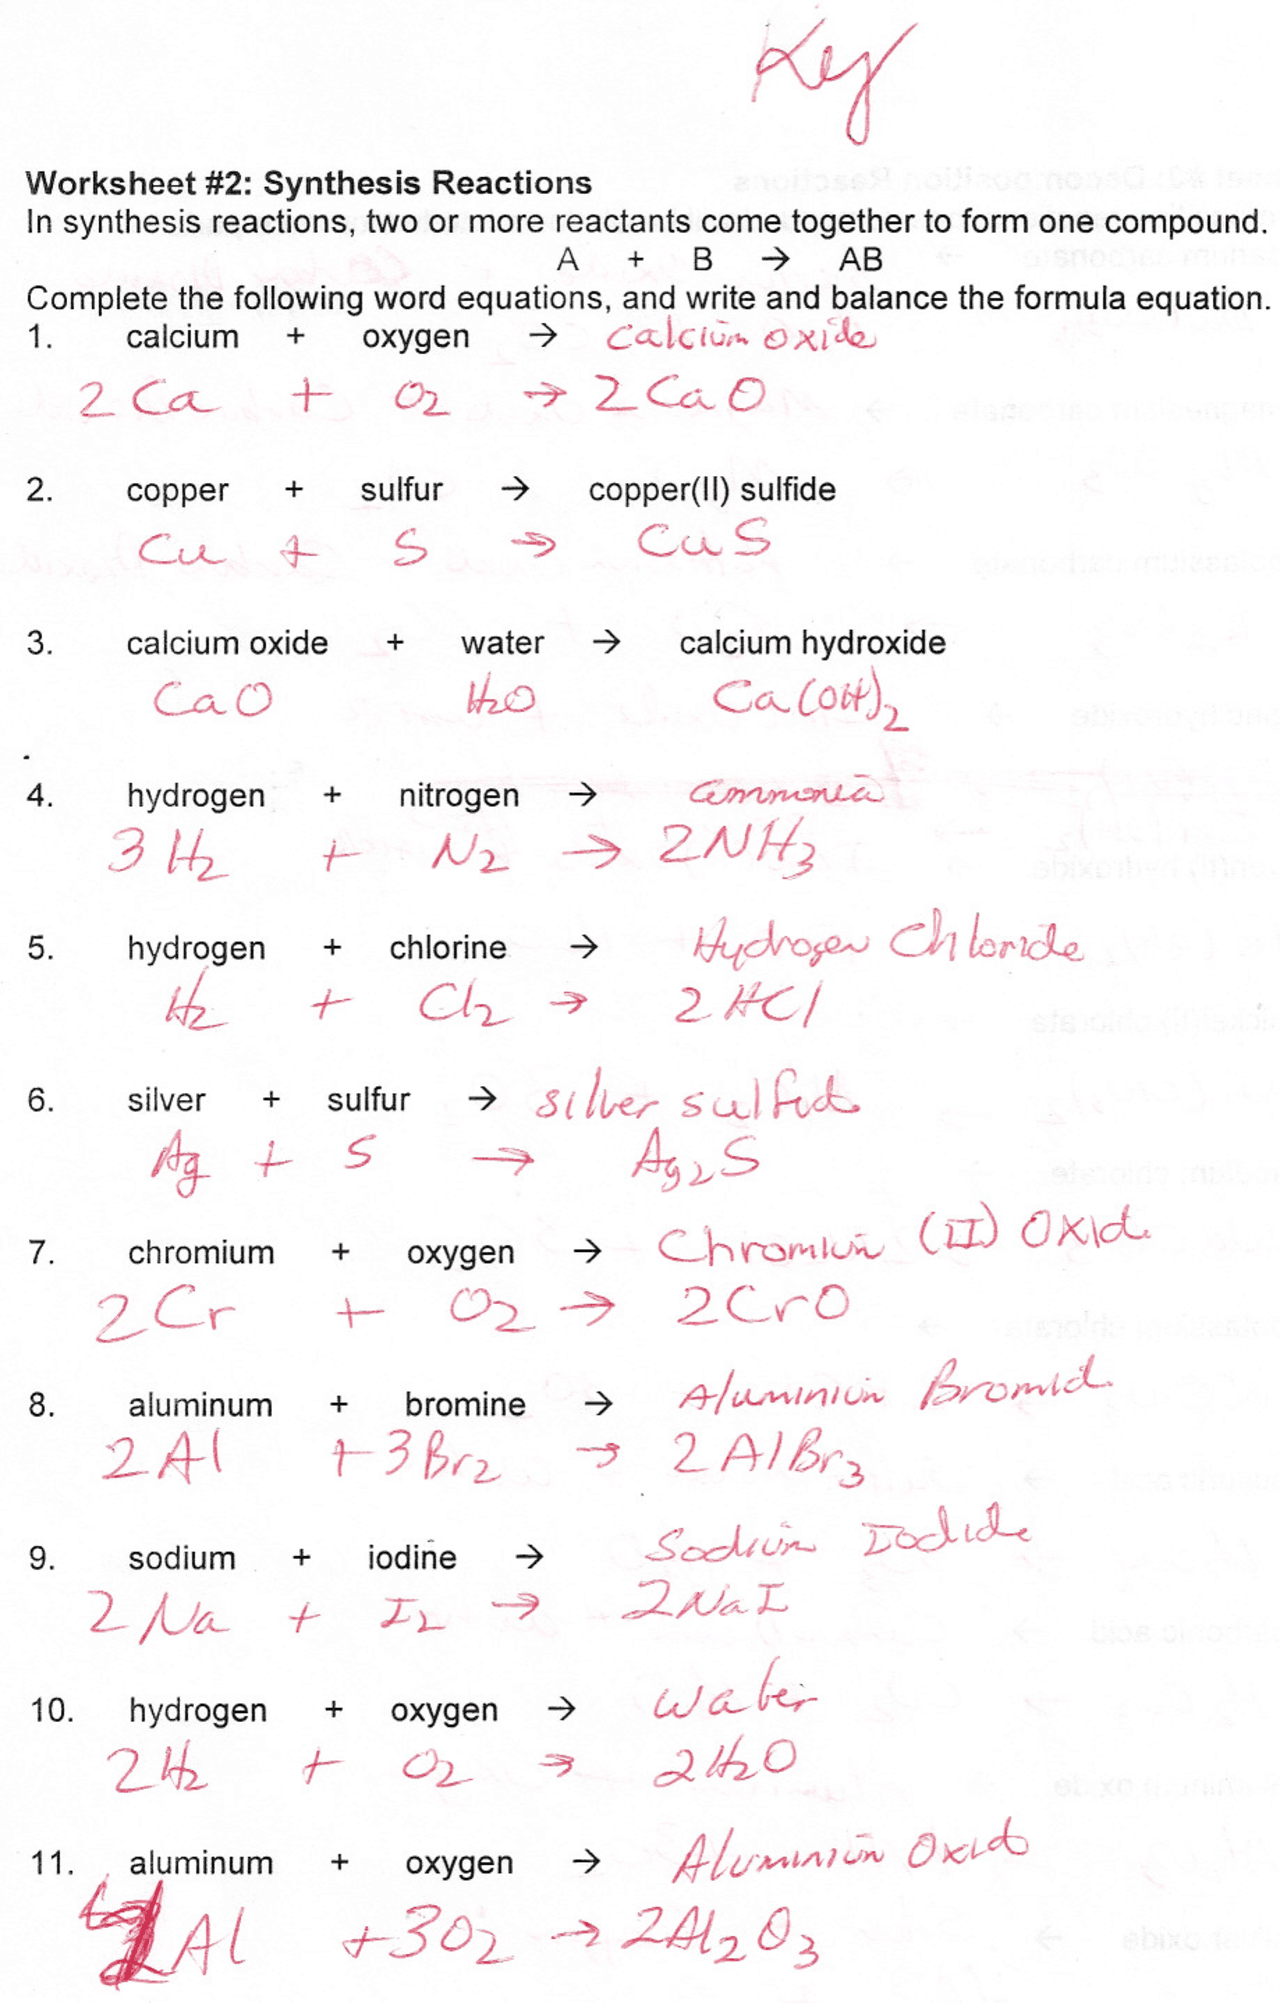 Key
Worksheet #2: Synthesis Reactions
In synthesis reactions, two or more reactants come together to form one compound.
A + B → AB
Complete the following word equations, and write and balance the formula equation.
1. calcium + oxygen → calcium oxide
2 Ca + O2 → 2 CaO
2. copper + sulfur → copper(II) sulfide
Cu + S → CuS
3. calcium oxide + water → calcium hydroxide
CaO H2O Ca(OH)2
4. hydrogen + nitrogen → ammonia
3 H2 + N2 → 2NH3
5. hydrogen + chlorine → Hydrogen Chloride
H2 + Cl2 → 2 HCl
6. silver + sulfur → silver sulfid
Ag + S → Ag2S
7. chromium + oxygen → Chromium (II) Oxid
2 Cr + O2 → 2CrO
8. aluminum + bromine → Aluminium Bromid
2 Al + 3Br2 → 2 AlBr3
9. sodium + iodine → Sodium Iodide
2 Na + I2 → 2NaI
10. hydrogen + oxygen → Water
2H2 + O2 → 2H2O
11. aluminum + oxygen → Aluminium Oxid
Al + 3O2 → 2Al2O3